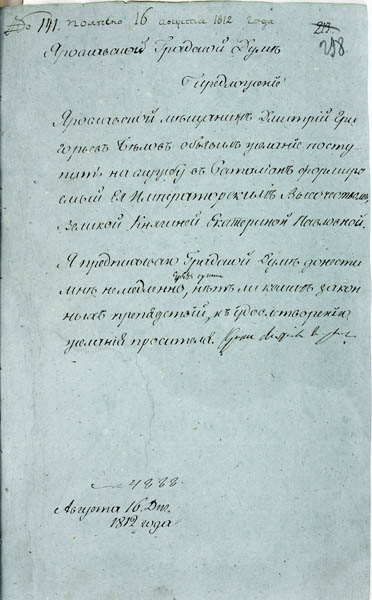 До 141. получено 16 августа 1812 года
217.
218
Ярославской Градской Думѣ
Предложенiе
Ярославской мѣщанинъ Дмитрiй Гри-
горьевъ Бѣловъ объявилъ желанiе посту-
пить на службу въ баталiонъ формируе-
мый Ея Императорскимъ Высочествомъ,
Великой Княгиней Екатериной Павловной.
Я предписываю Градской Думѣ донести
мнѣ немедленно, нѣтъ ли какихъ закон-
ныхъ препядствiй, къ удовлетворенiю
желанiя просителя.
4888.
Августа 16. Дня.
1812 года